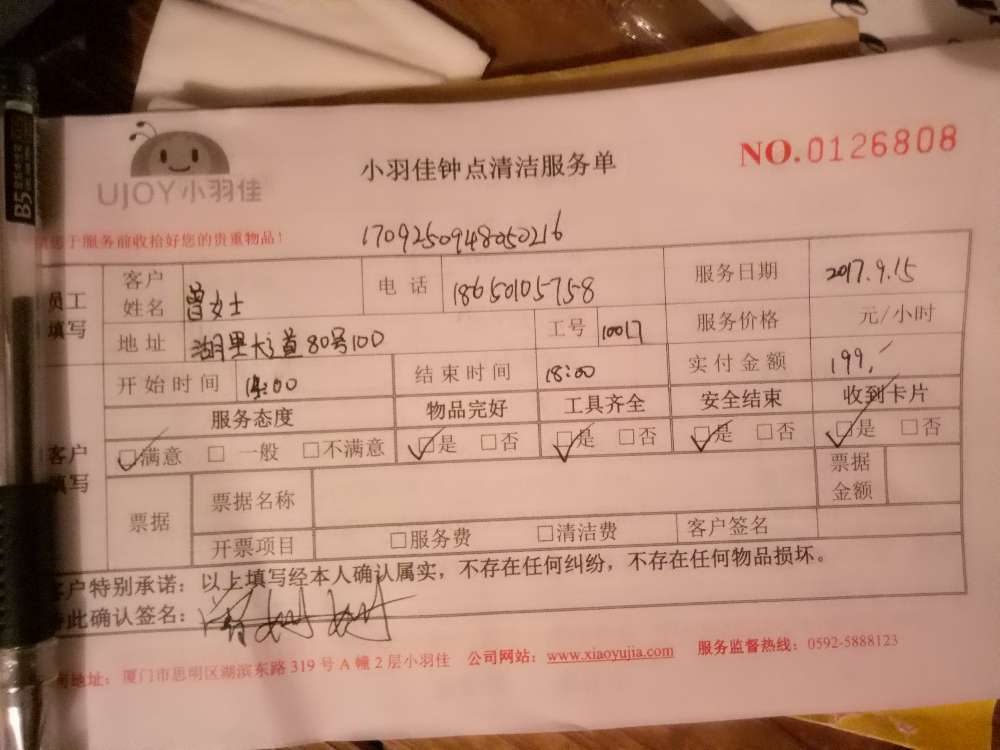 UJOY小羽佳
小羽佳钟点清洁服务单
NO.0126808
于服务前收拾好您的贵重物品!
1709250948050216
员工填写
客户姓名 曾女士 电话 18650105758 服务日期 2017.9.15
地址 湖里大道80号100 工号 10017 服务价格 元/小时
开始时间 14:00 结束时间 18:00 实付金额 199.
客户填写
服务态度 物品完好 工具齐全 安全结束 收到卡片
☑满意 □一般 □不满意 ☑是 □否 ☑是 □否 ☑是 □否 ☑是 □否
票据 票据名称 票据金额
开票项目 □服务费 □清洁费 客户签名
客户特别承诺:以上填写经本人确认属实,不存在任何纠纷,不存在任何物品损坏。
此确认签名:
地址:厦门市思明区湖滨东路319号A幢2层小羽佳 公司网站:www.xiaoyujia.com 服务监督热线:0592-5888123
B5